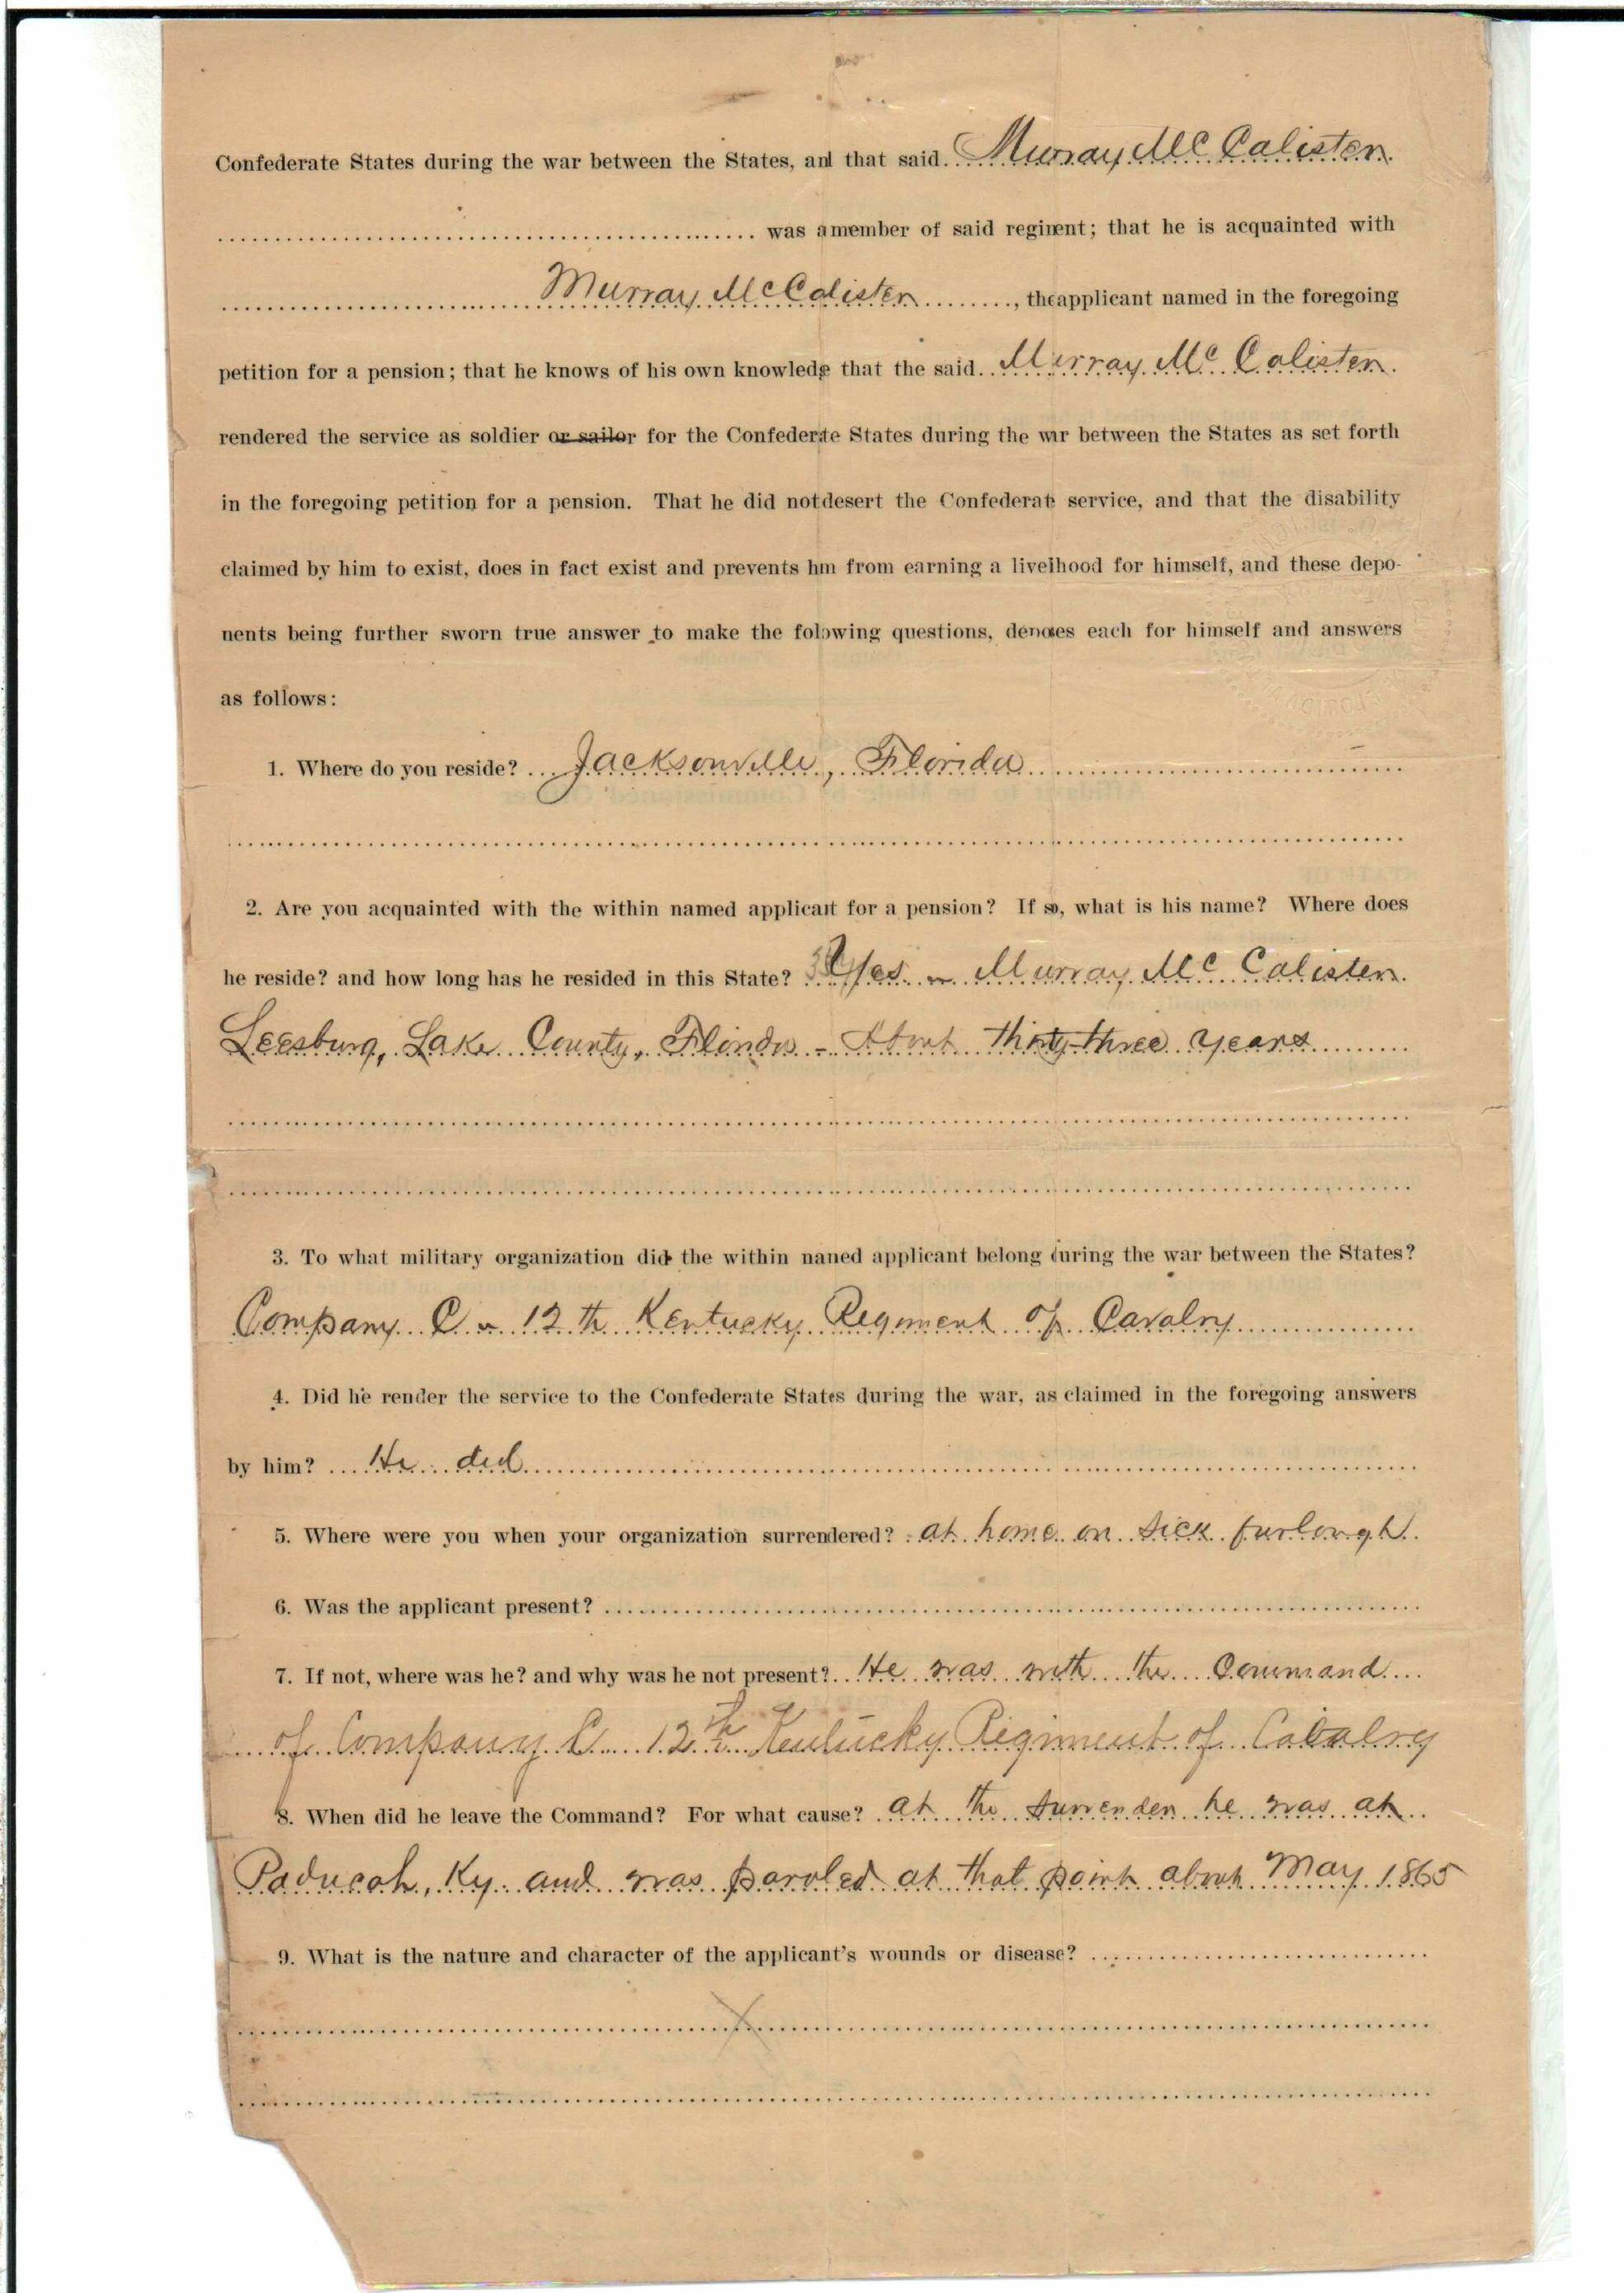 Confederate States during the war between the States, and that said Murray McCalister
was a member of said regiment; that he is acquainted with
Murray McCalister, the applicant named in the foregoing
petition for a pension; that he knows of his own knowledge that the said Murray McCalister
rendered the service as soldier or sailor for the Confederate States during the war between the States as set forth
in the foregoing petition for a pension. That he did not desert the Confederate service, and that the disability
claimed by him to exist, does in fact exist and prevents him from earning a livelihood for himself, and these depo-
nents being further sworn true answer to make the following questions, denotes each for himself and answers
as follows:
1. Where do you reside? Jacksonville, Florida
2. Are you acquainted with the within named applicant for a pension? If so, what is his name? Where does
he reside? and how long has he resided in this State? Yes - Murray McCalister.
Leesburg, Lake County, Florida - About thirty-three years
3. To what military organization did the within named applicant belong during the war between the States?
Company C - 12th Kentucky Regiment of Cavalry
4. Did he render the service to the Confederate States during the war, as claimed in the foregoing answers
by him? He did
5. Where were you when your organization surrendered? at home on sick furlough.
6. Was the applicant present?
7. If not, where was he? and why was he not present? He was with the Command
of Company C 12th Kentucky Regiment of Cavalry
8. When did he leave the Command? For what cause? at the surrender he was at
Paducah, Ky. and was paroled at that point about May 1865
9. What is the nature and character of the applicant's wounds or disease?
X